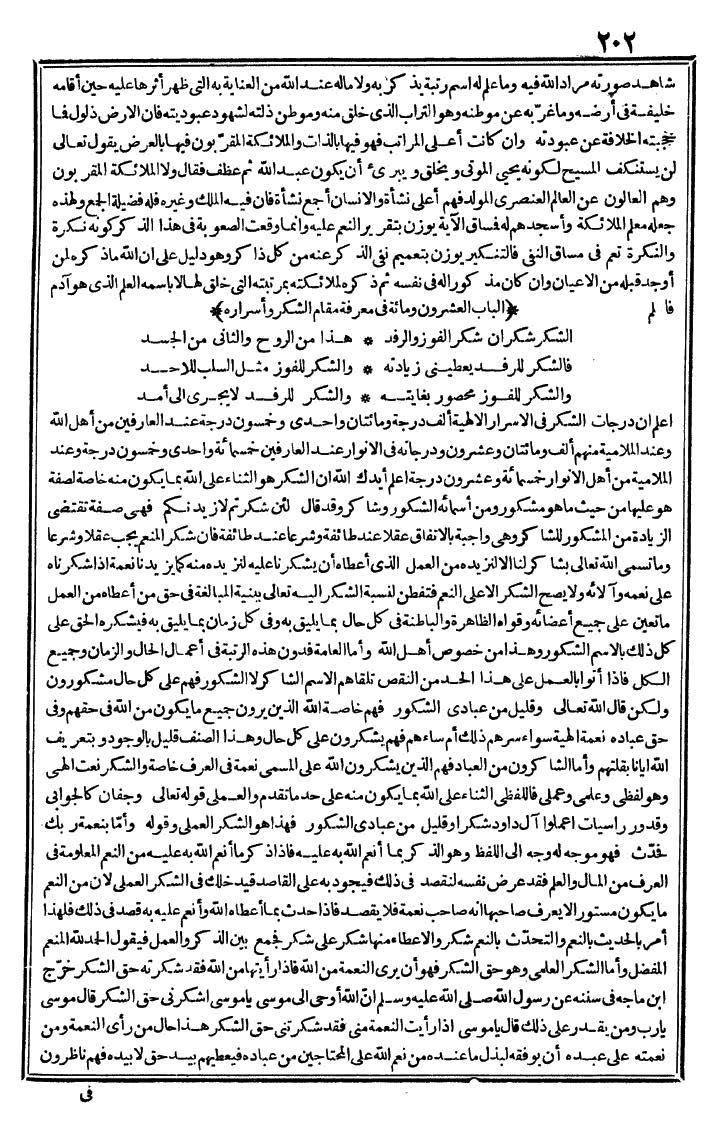 ٢٠٢
شاهد صورته مراد الله فيه وما علم له اسم رتبة يذكر به ولا ماله عند الله من العناية به التي ظهر أثرها عليه حين أقامه
خليفة في أرضه وما غرّ به عن موطنه وهو التراب الذي خلق منه وموطن ذلته لشهود عبوديته فان الارض ذلول فا
حجبته الخلافة عن عبودته وان كانت أعلى المراتب فهو فيها بالذات والملائكة المقرّبون فيها بالعرض يقول تعالى
لن يستنكف المسيح لكونه يحيي الموتى ويخلق ويبرئ أن يكون عبد الله ثم عطف فقال ولا الملائكة المقربون
وهم العالون عن العالم العنصرى المولد فهم أعلى نشأة والانسان أجمع نشأة فان فيه الملك وغيره فله فضيلة الجمع ولهذه
جعله معلم الملائكة وأسجدهم له فساق الآية يوزن بتقرير النعم عليه وانما وقعت الصعوبة في هذا الذكر كونه نكرة
والنكرة تعم في مساق النفي فالتنكير يوزن بتعميم نفي الذكر عنه من كل ذاكر وهو دليل على ان الله ماذكره لمن
أوجد قبله من الاعيان وان كان مذكورا له في نفسه ثم ذكره لملائكته بمرتبته التي خلق لها لا باسمه العلم الذي هو آدم
فاعلم ﴿الباب العشرون ومائة في معرفة مقام الشكر وأسراره﴾
الشكر شكران شكر الفوز والرفد * هذا من الروح والثاني من الجسد
فالشكر للرفد يعطيني زيادته * والشكر للفوز مثل السلب للاحد
والشكر للفوز محصور بغايته * والشكر للرفد لا يجري الى أمد
اعلم ان درجات الشكر في الاسرار الالهية ألف درجة ومائتان واحدى وخمسون درجة عند العارفين من أهل الله
وعند الملامية منهم ألف ومائتان وعشرون ودرجاته في الانوار عند العارفين خمسمائة واحدى وخمسون درجة وعند
الملامية من أهل الانوار خمسمائة وعشرون درجة اعلم أيدك الله ان الشكر هو الثناء على الله بما يكون منه خاصة لصفة
هو عليها من حيث ما هو مشكور ومن أسمائه الشكور وشاكر وقد قال لئن شكرتم لازيدنكم فهى صفة تقتضى
الزيادة من المشكور للشاكر وهى واجبة بالاتفاق عقلا عند طائفة وشرعا عند طائفة فان شكر المنعم يجب عقلا وشرعا
وماتسمى الله تعالى بشاكر لنا الا لنزيده من العمل الذي أعطاه أن يشكرنا عليه لنزيده منه كما يزيدنا نعمة اذا شكرناه
على نعمه وآلائه ولا يصح الشكر الا على النعم فتفطن لنسبة الشكر اليه تعالى ببنية المبالغة في حق من أعطاه من العمل
ماتعين على جميع أعضائه وقواه الظاهرة والباطنة في كل حال بما يليق به وفي كل زمان بما يليق به فيشكره الحق على
كل ذلك بالاسم الشكور وهذا من خصوص أهل الله وأما العامة فدون هذه الرتبة في أعمال الحال والزمان وجميع
الكل فاذا أتوا بالعمل على هذا الحد من النقص تلقاهم الاسم الشاكر لا الشكور فهم على كل حال مشكورون
ولكن قال الله تعالى وقليل من عبادى الشكور فهم خاصة الله الذين يرون جميع مايكون من الله في حقهم وفي
حق عباده نعمة الهية سواء سرهم ذلك أم ساءهم فهم يشكرون على كل حال وهذا الصنف قليل بالوجود وبتعريف
الله ايانا بقلتهم وأما الشاكرون من العباد فهم الذين يشكرون الله على المسمى نعمة في العرف خاصة والشكر نعت الهى
وهو لفظى وعلمى وعملى فاللفظى الثناء على الله بما يكون منه على حد ماتقدم والعملى قوله تعالى وجفان كالجوابى
وقدور راسيات اعملوا آل داود شكرا وقليل من عبادى الشكور فهذا هو الشكر العملى وقوله وأمّا بنعمة ربك
فحدّث فهو موجه له وجه الى اللفظ وهو الذكر بما أنعم الله به عليه فاذا ذكر ما أنعم الله به عليه من النعم المعلومة في
العرف من المال والعلم فقد عرض نفسه لنقصد في ذلك فيجود به على القاصد فيدخلك في الشكر العملى لان من النعم
مايكون مستورا لايعرف صاحبها انه صاحب نعمة فلا يقصد فاذا حدث بما أعطاه الله وأنعم عليه به قصد في ذلك فلهذا
أمر بالحديث بالنعم والتحدّث بالنعم شكر والاعطاء منها شكر على شكر فجمع بين الذكر والعمل فيقول الحمد لله المنعم
المفضل وأما الشكر العلمى وهو حق الشكر فهو أن يرى النعمة من الله فاذا رأيتها من الله فقد شكرته حق الشكر خرّج
ابن ماجه في سننه عن رسول الله صلى الله عليه وسلم انّ الله أوحى الى موسى ياموسى اشكرنى حق الشكر قال موسى
يارب ومن يقدر على ذلك قال ياموسى اذا رأيت النعمة منى فقد شكرتنى حق الشكر هذا حال من رأى النعمة ومن
نعمته على عبده أن يوفقه لبذل ماعنده من نعم الله على المحتاجين من عباده فيعطيهم بيد حق لا بيده فهم ناظرون
في